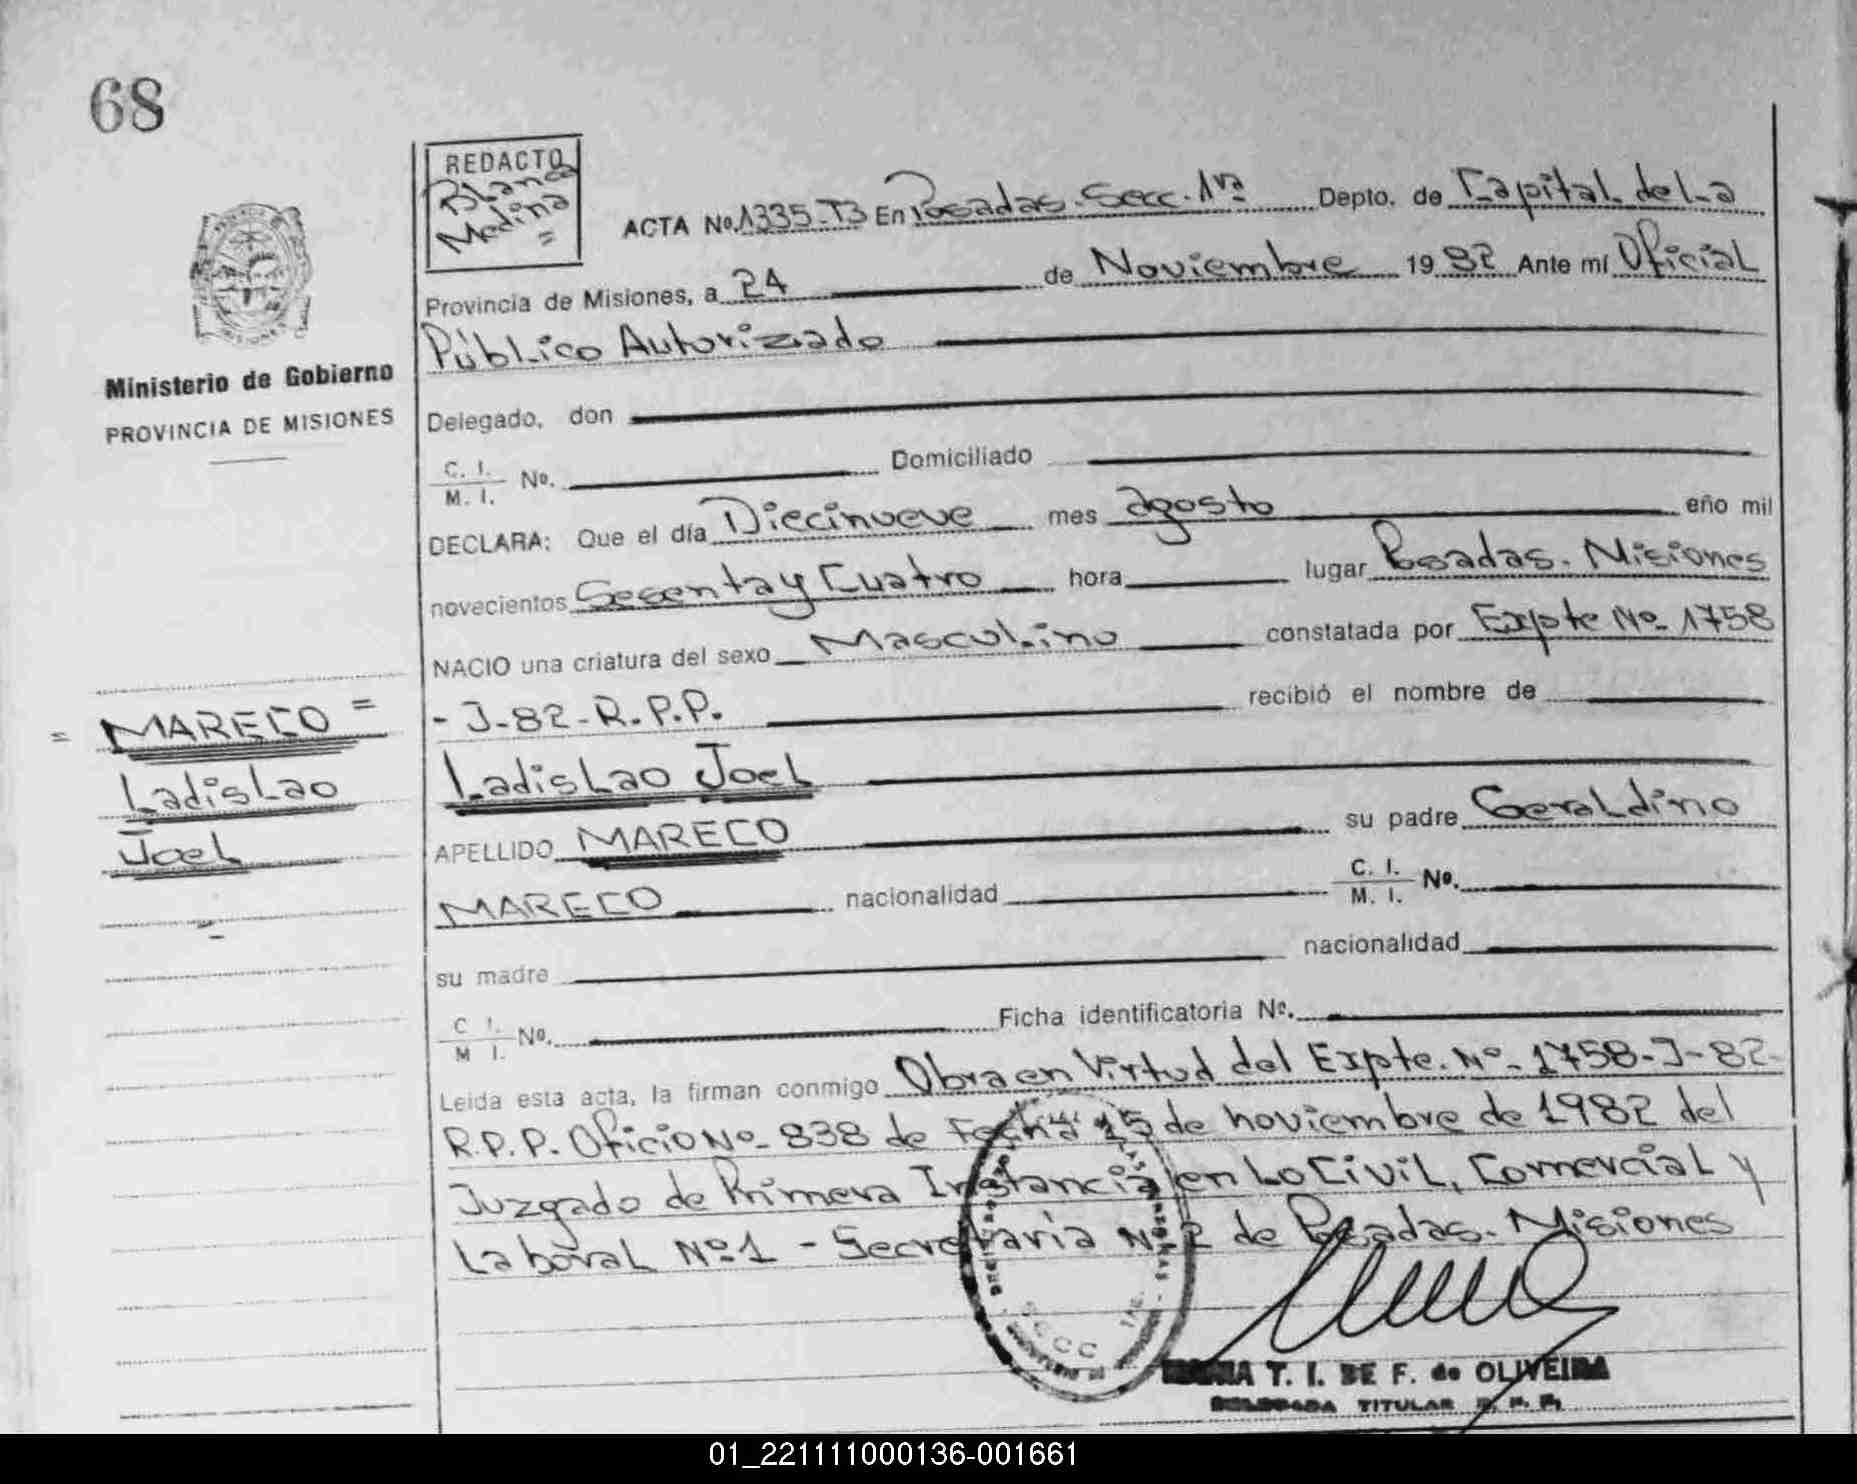 68
REDACTO
Blanca
Medina
=
ACTA No. 1335-T3 En Posadas. Secc. 1ra Depto. de Capital de La
Provincia de Misiones, a 24 de Noviembre 1982 Ante mí Oficial
Público Autorizado
Delegado, don
C. I.
M. I. No. Domiciliado
DECLARA: Que el día Diecinueve mes agosto eño mil
novecientos Sesenta y Cuatro hora lugar Posadas. Misiones
NACIO una criatura del sexo Masculino constatada por Expte No- 1758
- J-82-R.P.P. recibió el nombre de
Ladislao Joel
APELLIDO MARECO su padre Geraldino
MARECO nacionalidad C. I.
M. I. No.
su madre nacionalidad
C. I.
M. I. No. Ficha identificatoria No.
Leida esta acta, la firman conmigo Obra en Virtud del Expte. No- 1758-J-82-
R.P.P. Oficio No- 838 de Fecha 15 de noviembre de 1982 del
Juzgado de Primera Instancia en Lo Civil, Comercial y
Laboral No 1 - Secretaria No 2 de Posadas. Misiones
T. I. DE F. de OLIVEIRA
DELEGADA TITULAR R. P. P.
Ministerio de Gobierno
PROVINCIA DE MISIONES
= MARECO =
Ladislao
Joel
01_221111000136-001661